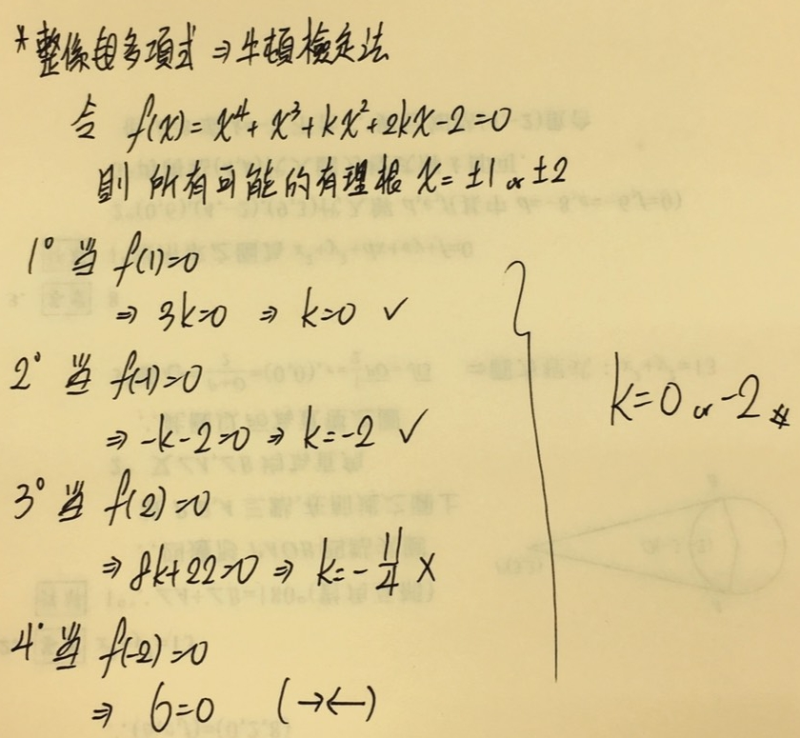 *整係數多項式 ⇒ 牛頓檢定法
令 f(x) = x⁴ + x³ + kx² + 2kx - 2 = 0
則 所有可能的有理根 x = ±1 or ±2
1° 當 f(1)=0
⇒ 3k=0 ⇒ k=0 ✓
2° 當 f(-1)=0
⇒ -k-2=0 ⇒ k=-2 ✓
3° 當 f(2)=0
⇒ 8k+22=0 ⇒ k=-11/4 ×
4° 當 f(-2)=0
⇒ 6=0 (→←)
k=0 or -2 #